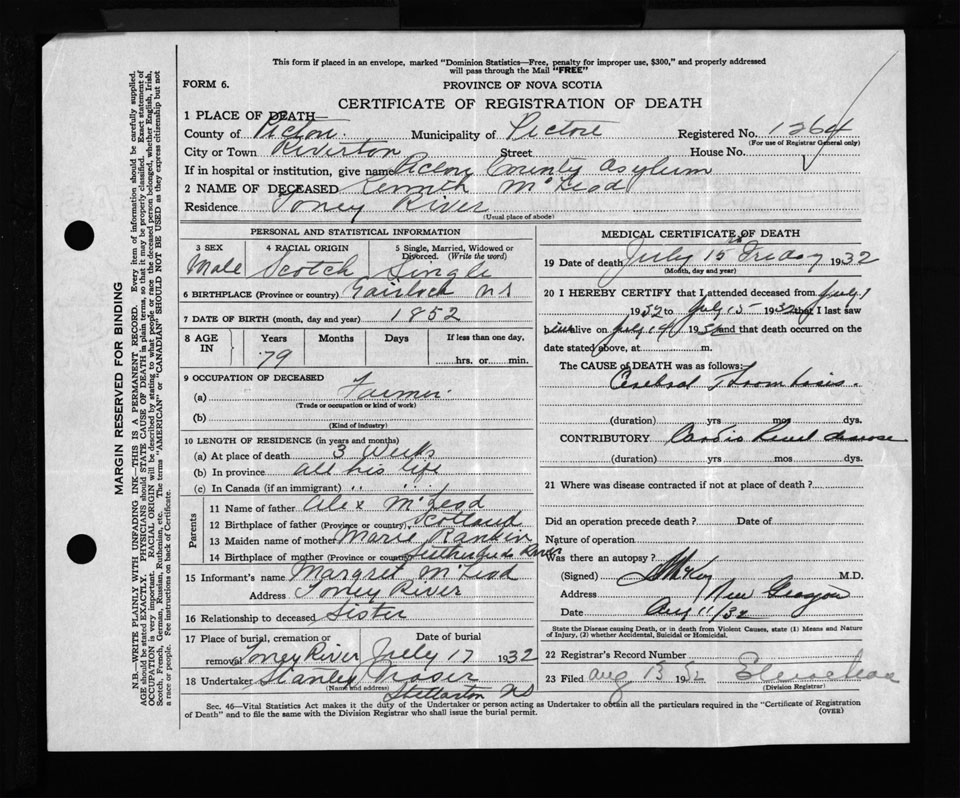 This form if placed in an envelope, marked "Dominion Statistics—Free, penalty for improper use, $300," and properly addressed
will pass through the Mail "FREE"
FORM 6.
PROVINCE OF NOVA SCOTIA
CERTIFICATE OF REGISTRATION OF DEATH
1 PLACE OF DEATH—
County of Pictou. Municipality of Pictou Registered No. 1264
(For use of Registrar General only)
City or Town Riverton Street House No.
If in hospital or institution, give name Pictou County Asylum
2 NAME OF DECEASED Kenneth McLeod
Residence Toney River
(Usual place of abode)
PERSONAL AND STATISTICAL INFORMATION
3 SEX 4 RACIAL ORIGIN 5 Single, Married, Widowed or
Divorced. (Write the word)
Male Scotch Single
6 BIRTHPLACE (Province or country) Gairloch NS
7 DATE OF BIRTH (month, day and year) 1852
8 AGE IN Years Months Days If less than one day,
79 hrs. or min.
9 OCCUPATION OF DECEASED
(a) Farmer
(Trade or occupation or kind of work)
(b)
(Kind of industry)
10 LENGTH OF RESIDENCE (in years and months)
(a) At place of death 3 Weeks
(b) In province all his life
(c) In Canada (if an immigrant) " " "
Parents
11 Name of father Alex McLeod
12 Birthplace of father (Province or country) Scotland
13 Maiden name of mother Marie Rankin
14 Birthplace of mother (Province or country) River
15 Informant's name Margret McLeod
Address Toney River
16 Relationship to deceased Sister
17 Place of burial, cremation or Date of burial
removal Toney River July 17 1932
18 Undertaker Stanley Fraser
(Name and address) Stellarton NS
MEDICAL CERTIFICATE OF DEATH
19 Date of death July 15 Friday 1932
(Month, day and year)
20 I HEREBY CERTIFY that I attended deceased from July 1
1932 to July 15 - 1932 that I last saw
him alive on July 14 1932 and that death occurred on the
date stated above, at m.
The CAUSE OF DEATH was as follows:
Cerebral Thrombosis.
(duration) yrs mos dys.
CONTRIBUTORY Cardio Renal disease
(duration) yrs mos dys.
21 Where was disease contracted if not at place of death?
Did an operation precede death? Date of
Nature of operation
Was there an autopsy?
(Signed) M.D.
Address New Glasgow
Date Aug 11/32
State the Disease causing Death, or in death from Violent Causes, state (1) Means and Nature
of Injury, (2) whether Accidental, Suicidal or Homicidal.
22 Registrar's Record Number
23 Filed Aug 15 1932
(Division Registrar)
Sec. 46—Vital Statistics Act makes it the duty of the Undertaker or person acting as Undertaker to obtain all the particulars required in the "Certificate of Registration
of Death" and to file the same with the Division Registrar who shall issue the burial permit. (OVER)
MARGIN RESERVED FOR BINDING
N.B.—WRITE PLAINLY WITH UNFADING INK—THIS IS A PERMANENT RECORD. Every item of information should be carefully supplied.
AGE should be stated EXACTLY. PHYSICIANS should STATE CAUSE OF DEATH in plain terms, so that it may be properly classified. Exact statement of
OCCUPATION is very important. RACIAL ORIGIN will be described by stating to what people or race the deceased person belonged, whether English, Irish,
Scotch, French, German, Russian, Ruthenian, etc. The terms "AMERICAN" or "CANADIAN" SHOULD NOT BE USED as they express citizenship but not
a race or people. See instructions on back of Certificate.